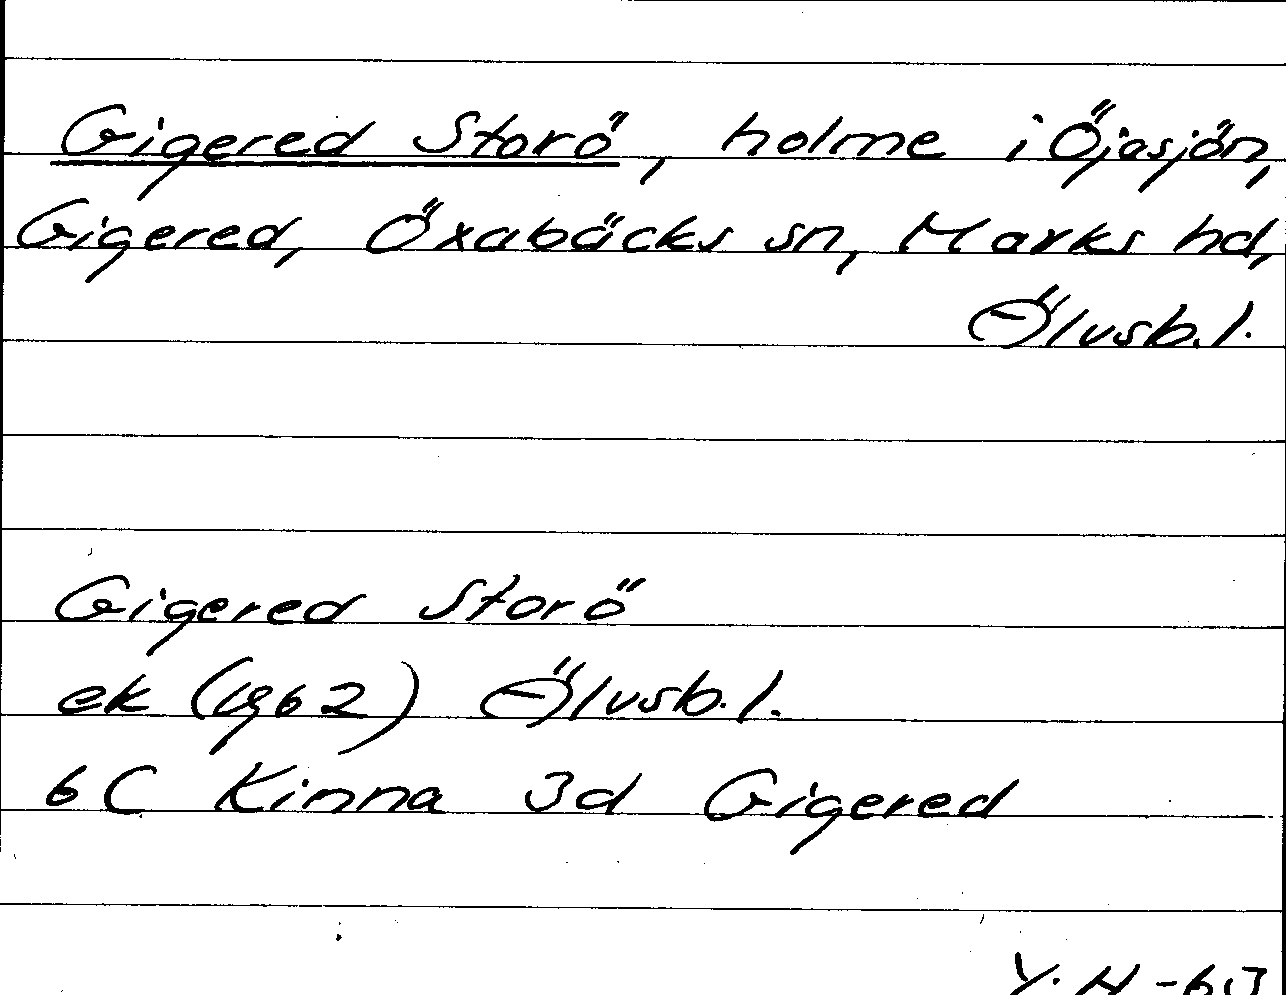 Gigered Storö, holme i Öjasjön,
Gigered, Öxabäcks sn, Marks hd,
Älvsb.l.
Gigered Storö
ek (1962) Älvsb.l.
6C Kinna 3d Gigered
Y.H -63